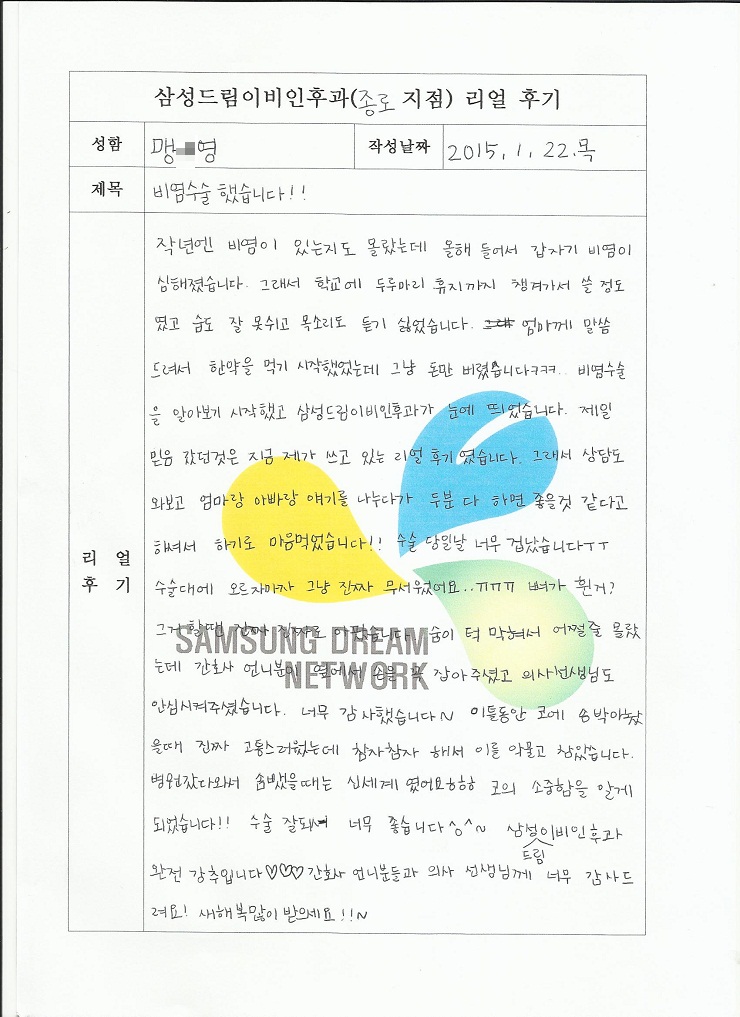 삼성드림이비인후과(종로 지점) 리얼 후기
성함 맹 영 작성날짜 2015. 1. 22. 목
제목 비염수술 했습니다!!
작년엔 비염이 있는지도 몰랐는데 올해 들어서 갑자기 비염이
심해졌습니다. 그래서 학교에 두루마리 휴지까지 챙겨가서 쓸 정도
였고 숨도 잘 못쉬고 목소리도 듣기 싫었습니다. 엄마께 말씀
드려서 한약을 먹기 시작했었는데 그냥 돈만 버렸습니다ㅋㅋㅋ.. 비염수술
을 알아보기 시작했고 삼성드림이비인후과가 눈에 띄었습니다. 제일
믿음 갔던것은 지금 제가 쓰고 있는 리얼 후기 였습니다. 그래서 상담도
와보고 엄마랑 아빠랑 얘기를 나누다가 두분 다 하면 좋을것 같다고
해셔서 하기로 마음먹었습니다!! 수술 당일날 너무 겁났습니다ㅜㅜ
수술대에 오르자마자 그냥 진짜 무서웠어요..ㅠㅠㅠ 뼈가 휜거?
그거 할땐 진짜 진짜로 아팠습니다. 숨이 턱 막혀서 어쩔줄 몰랐
는데 간호사 언니분이 옆에서 손을 꼭 잡아주셨고 의사선생님도
안심시켜주셨습니다. 너무 감사했습니다~ 이틀동안 코에 솜박아놨
을때 진짜 고통스러웠는데 참자참자 해서 이를 악물고 참았습니다.
병원갔다와서 솜뺐을때는 신세계 였어요ㅎㅎㅎ 코의 소중함을 알게
되었습니다!! 수술 잘되서 너무 좋습니다^o^~ 삼성드림이비인후과
완전 강추입니다♡♡♡ 간호사 언니분들과 의사 선생님께 너무 감사드
려요! 새해복많이 받으세요!!~
리 얼
후 기
SAMSUNG DREAM
NETWORK